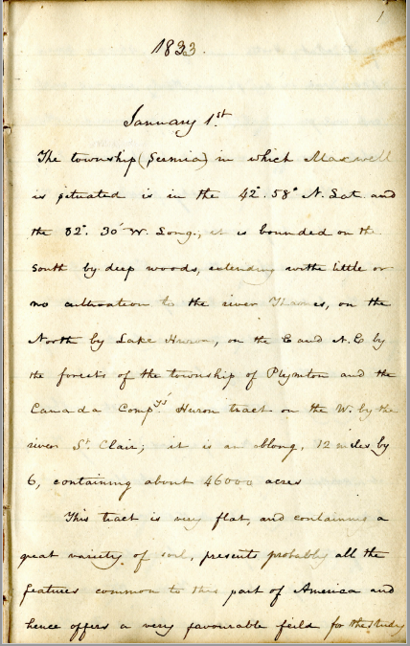 1833.
January 1st.
The township (Sarnia) in which Maxwell
is situated is in the 42°. 58° N. Lat. and
the 82°. 30' W. Long., it is bounded on the
South by deep woods, extending with little or
no cultivation to the river Thames, on the
North by Lake Huron, on the E and N.E by
the forests of the township of Plymton and the
Canada Compys' Huron tract on the W. by the
river St. Clair; it is an oblong, 12 miles by
6, containing about 46000 acres
This tract is very flat, and containing a
great variety of soil, presents probably all the
features common to this part of America and
hence offers a very favourable feild for the study